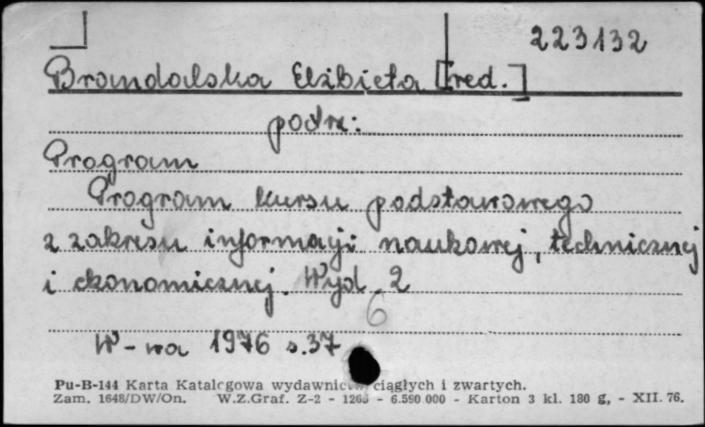 223132
Brandalska Elżbieta [red.]
podrz:
Program
Program kursu podstawowego
z zakresu informacji naukowej, technicznej
i ekonomicznej. Wyd. 2
6
W-wa 1976 s.37
Pu-B-144 Karta Katalogowa wydawnictw ciągłych i zwartych.
Zam. 1648/DW/On. W.Z.Graf. Z-2 - 1265 - 6.590 000 - Karton 3 kl. 180 g, - XII. 76.